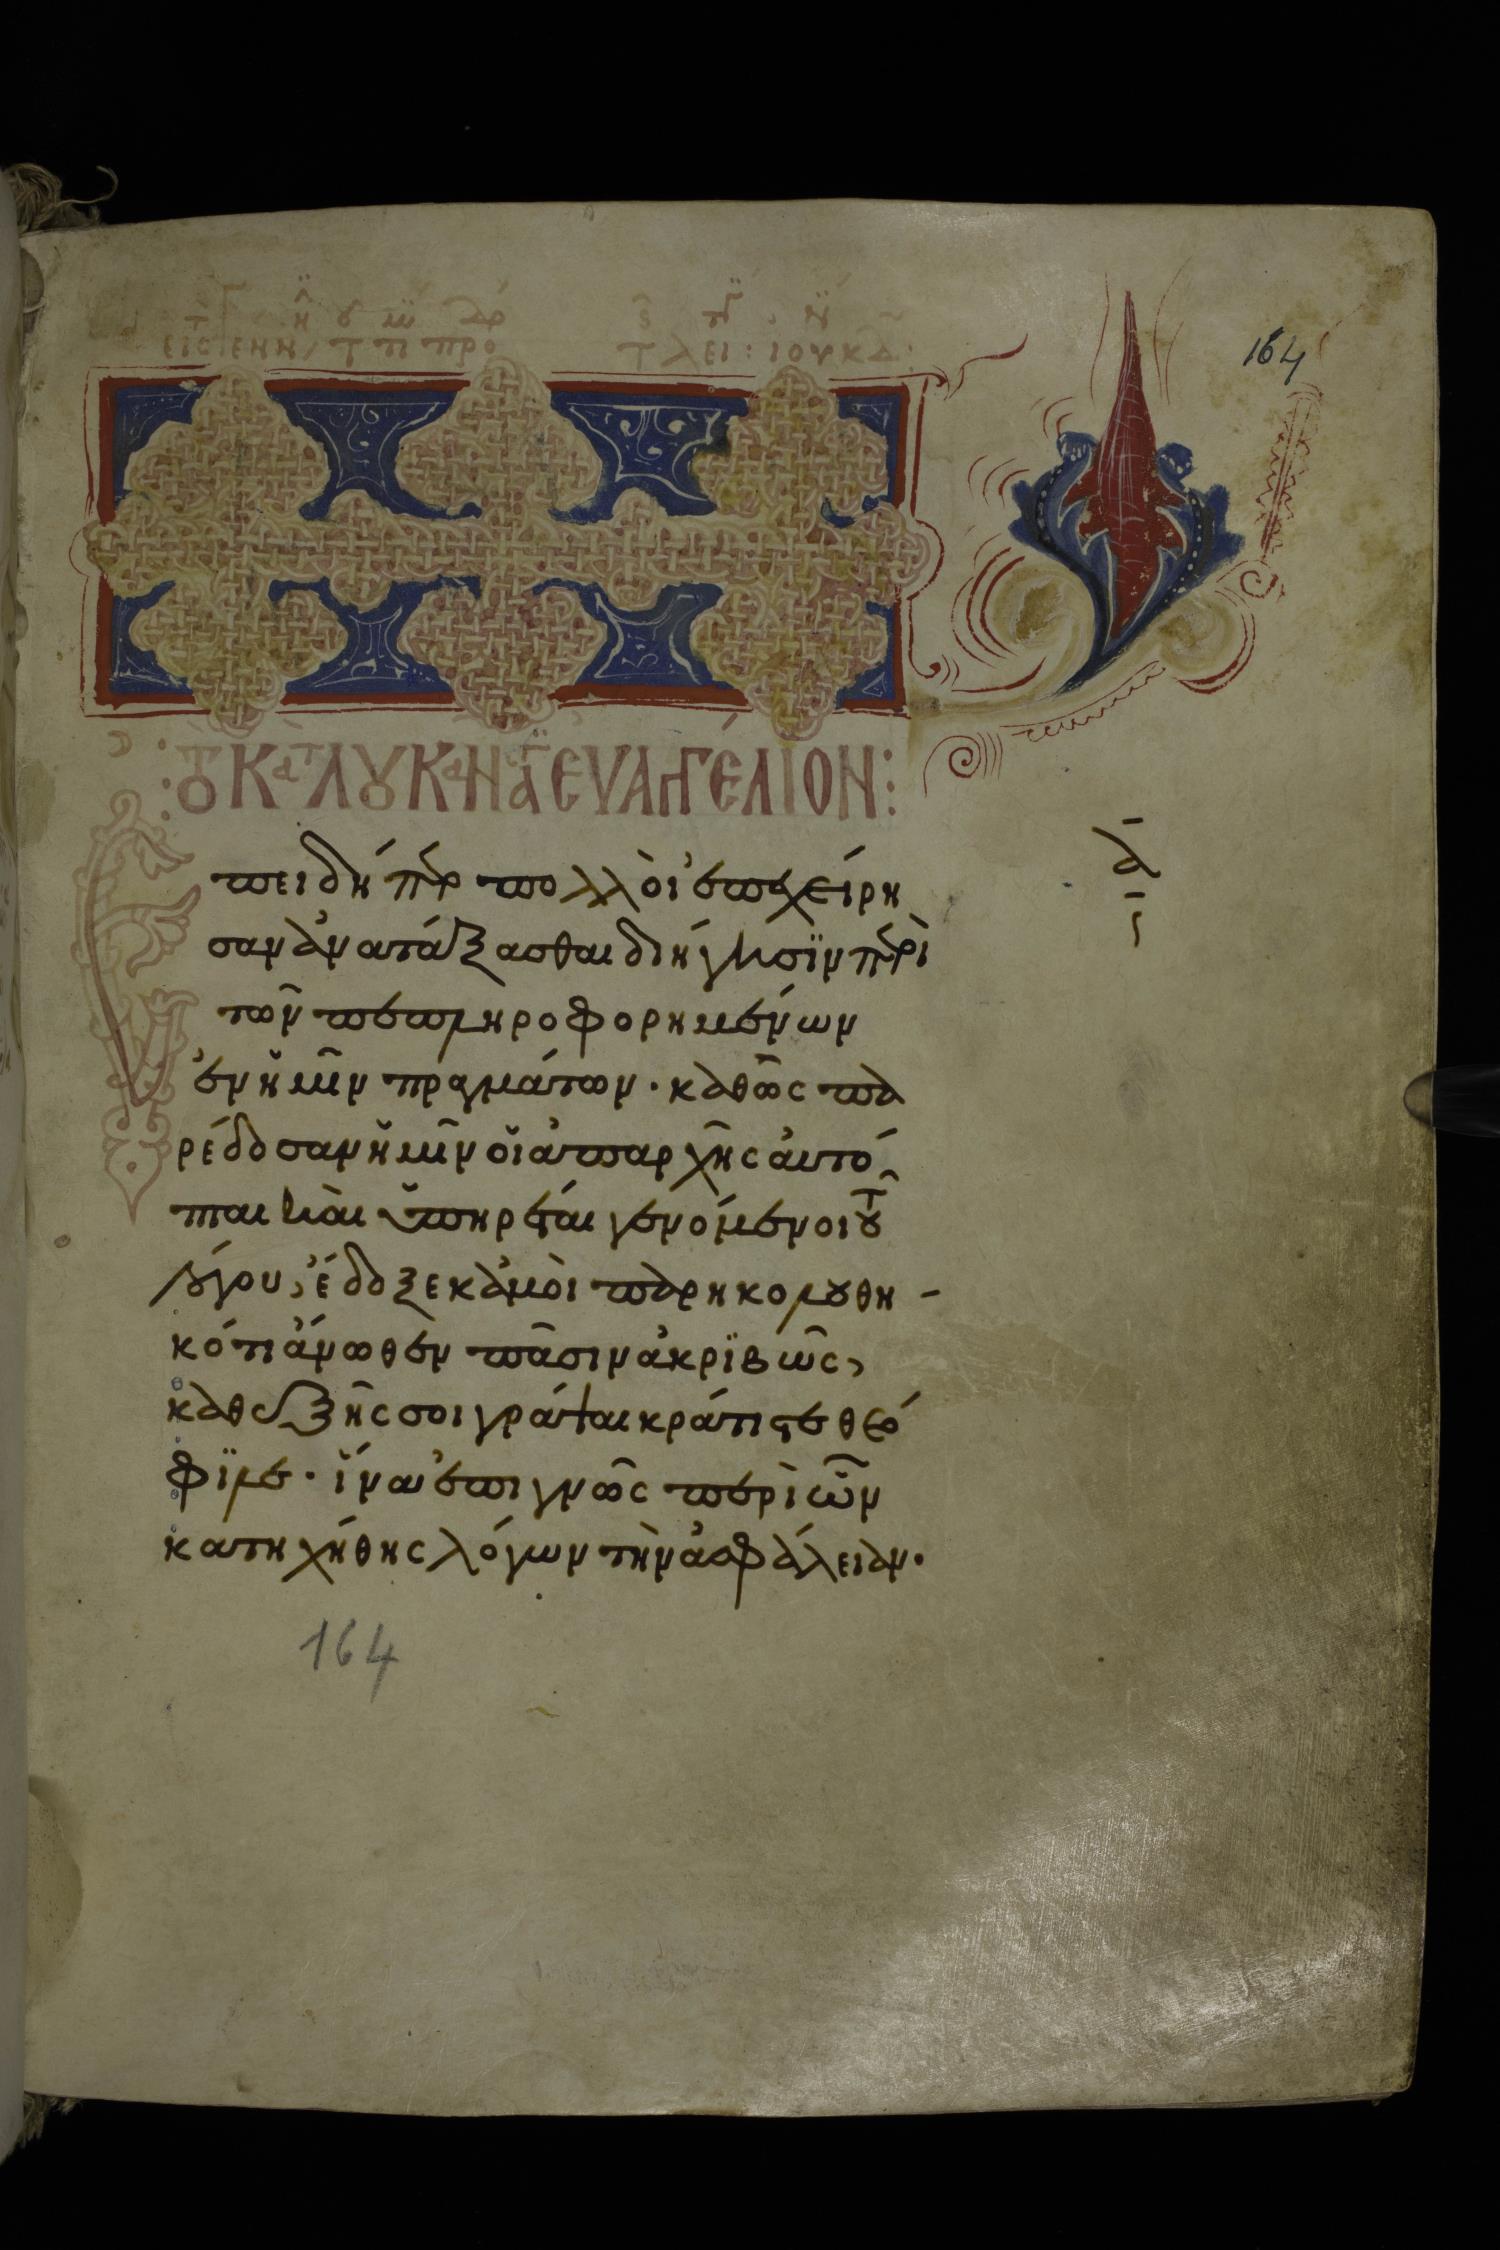 164
ΤΟΥ ΚΑΤ ΛΟΥΚΑΝ ἉΓ ΕΥΑΓΓΕΛΙΟΝ:
Ἐπειδήπερ πολλοὶ ἐπεχείρη
σαν ἀνατάξασθαι διήγησϊν περὶ
τῶν πεπληροφορημένων
ἐν ἡμῖν πραγμάτων· καθῶς πα
ρέδοσαν ἡμῖν οἱ ἀπαρχῆς αὐτό
πται καὶ ὑπηρέται γενόμενοι τοῦ
λόγου, ἔδοξε κἀμοὶ παρηκολουθη-
κότι ἄνωθεν πᾶσιν ἀκρϊβῶς,
καθεξῆς σοι γράψαι κράτιστε θεό
φϊλε· ἵνα ἐπιγνῶς περὶ ὧν
κατηχήθης λόγων τὴν ἀσφάλειαν·
ᾱ
ῑ
164